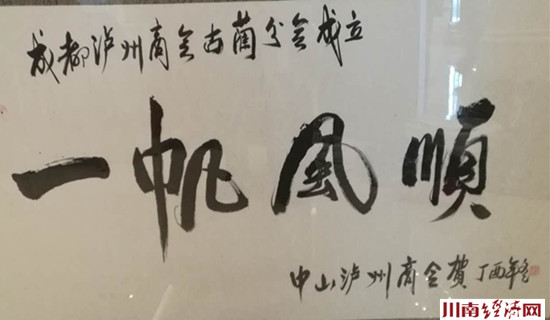 成都泸州商会古蔺分会成立
一帆風順
中山泸州商会贺丁酉年冬
川南经济网